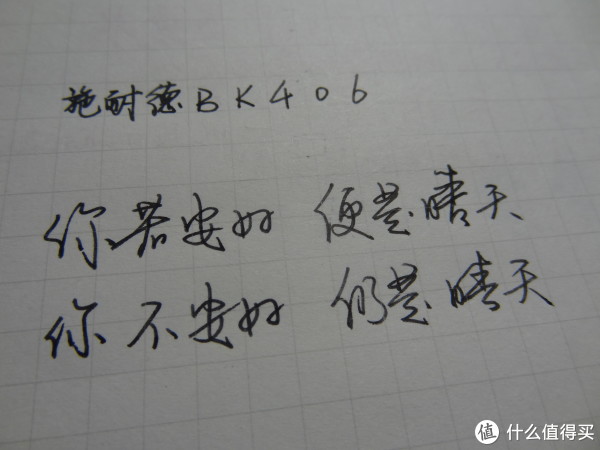 施耐德BK406
你若安好 便是晴天
你不安好 仍是晴天
值 什么值得买